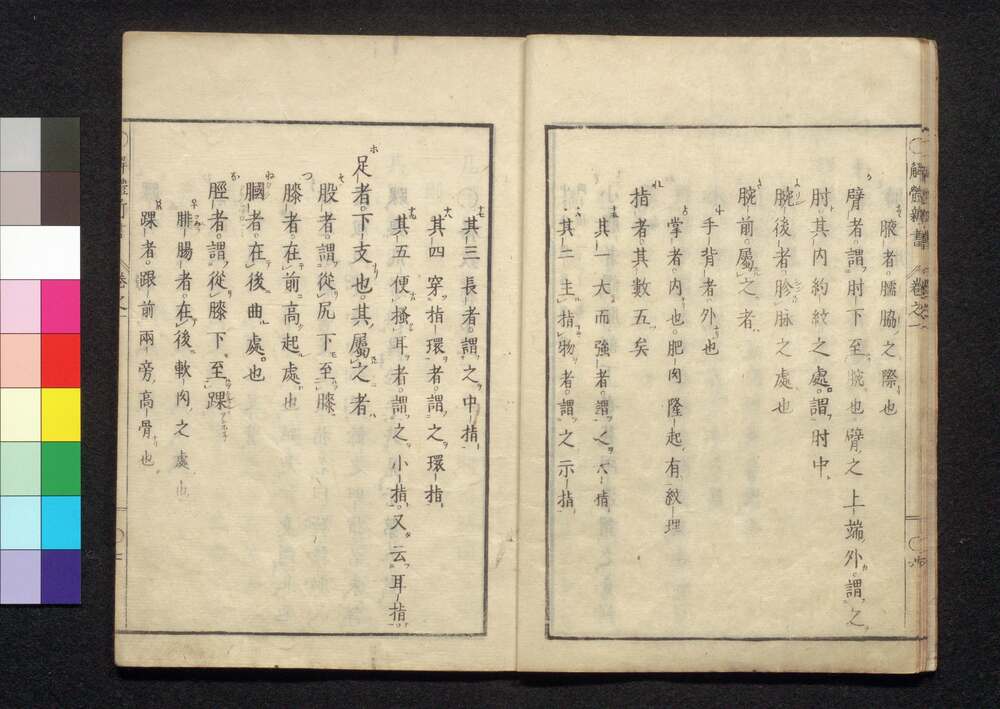 解體新書 卷之一
腋者。臑脇之際也
臂者。謂肘下至腕也臂之上端外。謂之
肘。其内約紋之處。謂肘中
腕後者。胗脉之處也
腕前。屬之者
手背者外也
掌者。内也。肥肉隆起有紋理
指者。其數五矣
其一大而強者。謂之大指
其二主指物者。謂之示指
其三長者。謂之中指
其四穿指環者。謂之環指
其五便搔耳者。謂之小指。又云耳指。
足者。下支也。其屬之者
股者。謂從尻下至膝
膝者。在前高起處也
膕者。在後曲處。也
脛者。謂從膝下至踝
腓腸者。在後軟肉之處也
踝者。跟前兩旁高骨也